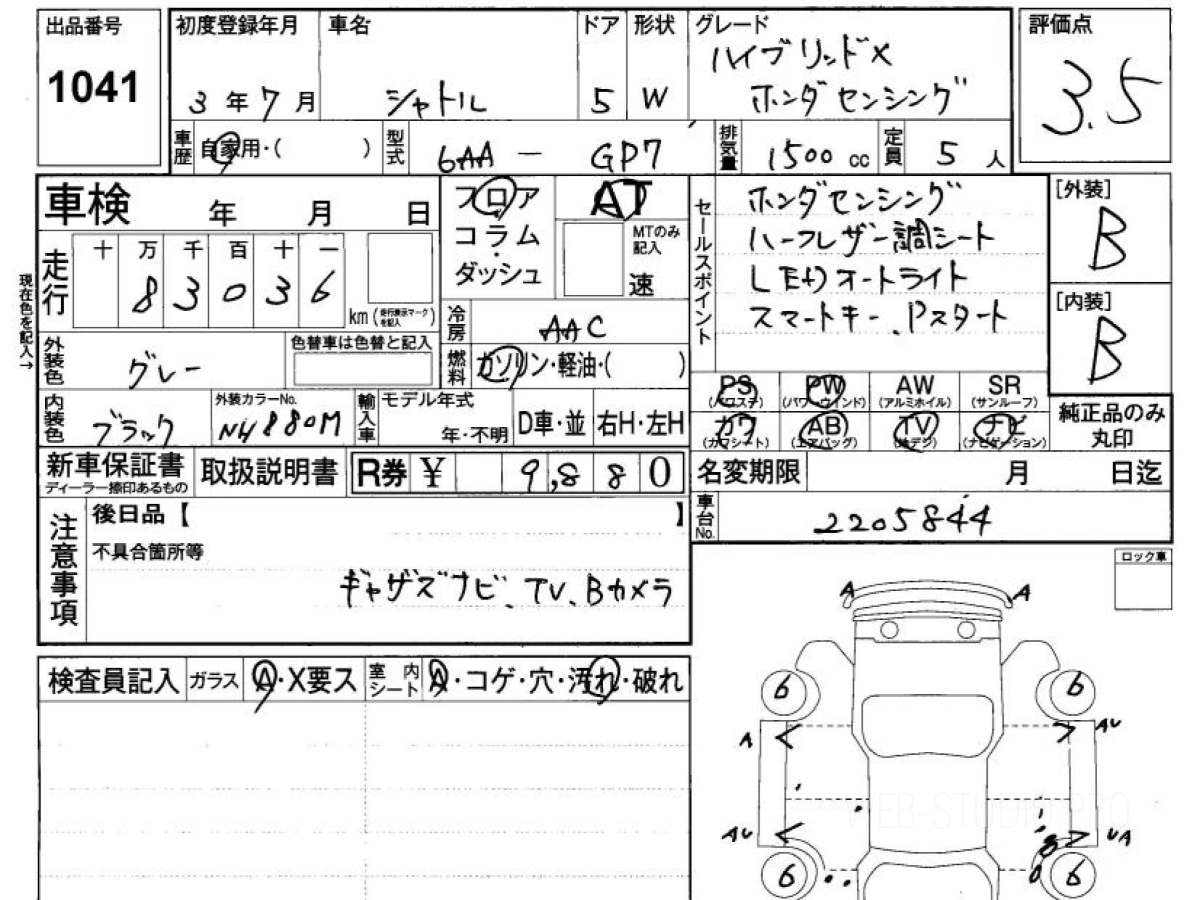 出品番号
1041
初度登録年月
3年7月
車名
シャトル
ドア
5
形状
W
グレード
ハイブリッドX
ホンダセンシング
評価点
3.5
車歴
自家用・( )
型式
6AA - GP7
排気量
1500 cc
定員
5人
車検 年 月 日
フロア
コラム
・
ダッシュ
AT
MTのみ
記入
速
セールスポイント
ホンダセンシング
ハーフレザー調シート
LEDオートライト
スマートキー、Pスタート
[外装]
B
[内装]
B
現在色を記入→
走行
十 万 千 百 十 一
8 3 0 3 6
km (走行表示マークを記入)
冷房
AAC
外装色
グレー
色替車は色替と記入
燃料
ガソリン・軽油・( )
PS
(パワステ)
PW
(パワーウインド)
AW
(アルミホイル)
SR
(サンルーフ)
カワ
(カワシート)
AB
(エアバッグ)
TV
(地デジ)
ナビ
(ナビゲーション)
純正品のみ
丸印
内装色
ブラック
外装カラーNo.
NH880M
輸入車
モデル年式
年・不明
D車・並
右H・左H
新車保証書
ディーラー捺印あるもの
取扱説明書
R券 ¥ 9,880
名変期限 月 日迄
車台No.
2205844
注意事項
後日品【 】
不具合箇所等
ギャザズナビ、TV、Bカメラ
ロック車
検査員記入
ガラス
A・X要ス
室内シート
A・コゲ・穴・汚れ・破れ
A A
6 6
A AU
AU UA
6 6
WEB-STUDIO.PRO